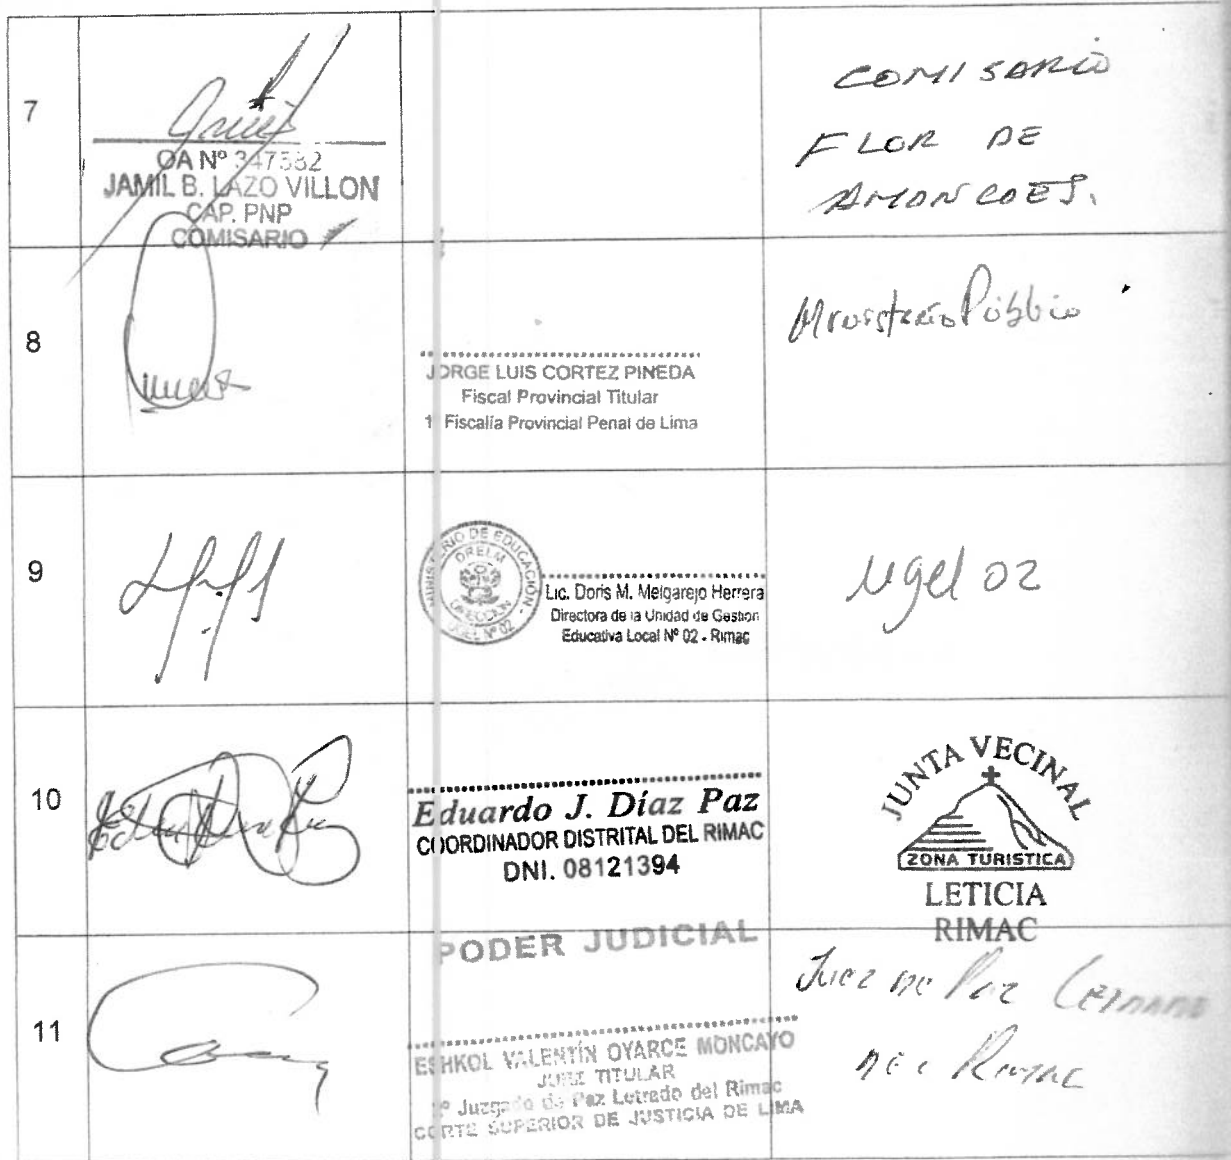 7
OA Nº 347582
JAMIL B. LAZO VILLON
CAP. PNP
COMISARIO
COMISARIO
FLOR DE
AMANCAES.
8
JORGE LUIS CORTEZ PINEDA
Fiscal Provincial Titular
1ª Fiscalía Provincial Penal de Lima
Ministerio Público
9
MINISTERIO DE EDUCACIÓN
DRELM
DIRECCION
UGEL Nº 02
Lic. Doris M. Melgarejo Herrera
Directora de la Unidad de Gestion
Educativa Local Nº 02 - Rimac
Ugel 02
10
Eduardo J. Díaz Paz
COORDINADOR DISTRITAL DEL RIMAC
DNI. 08121394
JUNTA VECINAL
ZONA TURISTICA
LETICIA
RIMAC
11
PODER JUDICIAL
ESHKOL VALENTÍN OYARCE MONCAYO
JUEZ TITULAR
Juzgado de Paz Letrado del Rimac
CORTE SUPERIOR DE JUSTICIA DE LIMA
Juez de Paz Letrado
del Rimac